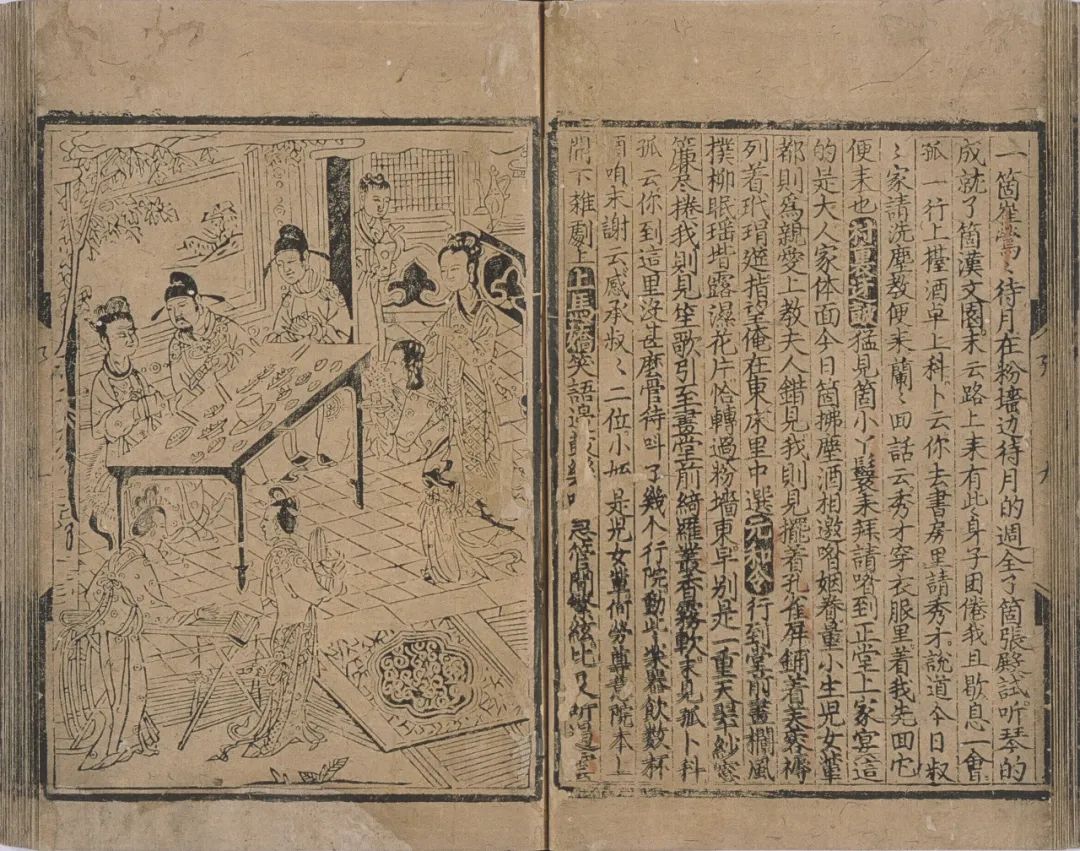 一箇崔鶯〻待月在粉墻边待月的週全了箇張殿試听琴的
成就了箇漢文園末云路上耒有些身子困倦我且歇息一會
孤一行上擡酒卓上科卜云你去書房里請秀才說道今日叔
〻家請洗塵教便来蘭〻囬話云秀才穿衣服里着我先囬它
便耒也村里迓鼓猛見箇小丫鬟耒拜請喒到正堂上家宴這
的是大人家体面今日箇拂塵酒相邀喒姻眷重小生児女輩
都則爲親愛上教夫人錯見我則見擺着孔雀屏鋪着芙蓉褥
列着玳瑁筵指望俺在東床里中選元和令行到堂前畫欄風
撲柳眠瑶堦露濕花片恰轉過粉墻東早别是一重天翠紗窓
簾尽捲我則見笙歌引至畫堂前綺羅叢香霧軟末見孤卜科
孤云你到這里没甚麽管待呌了幾个行院動些楽器飲數杯
咱末謝云感承叔〻二位小姐是児女輩何勞尊意院本上
開下雜劇上上馬嬌笑語急管間繁絃比及听雲